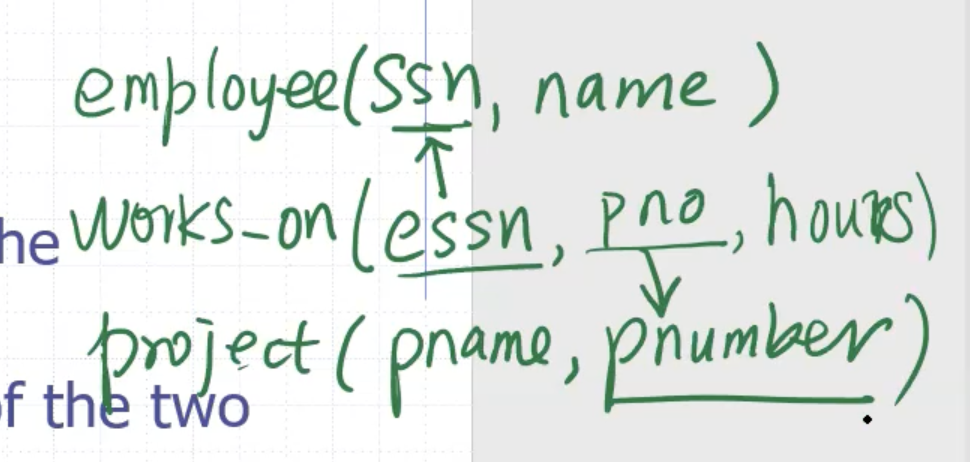 employee(ssn, name)
he
works_on(essn, pno, hours)
project(pname, pnumber)
of the two